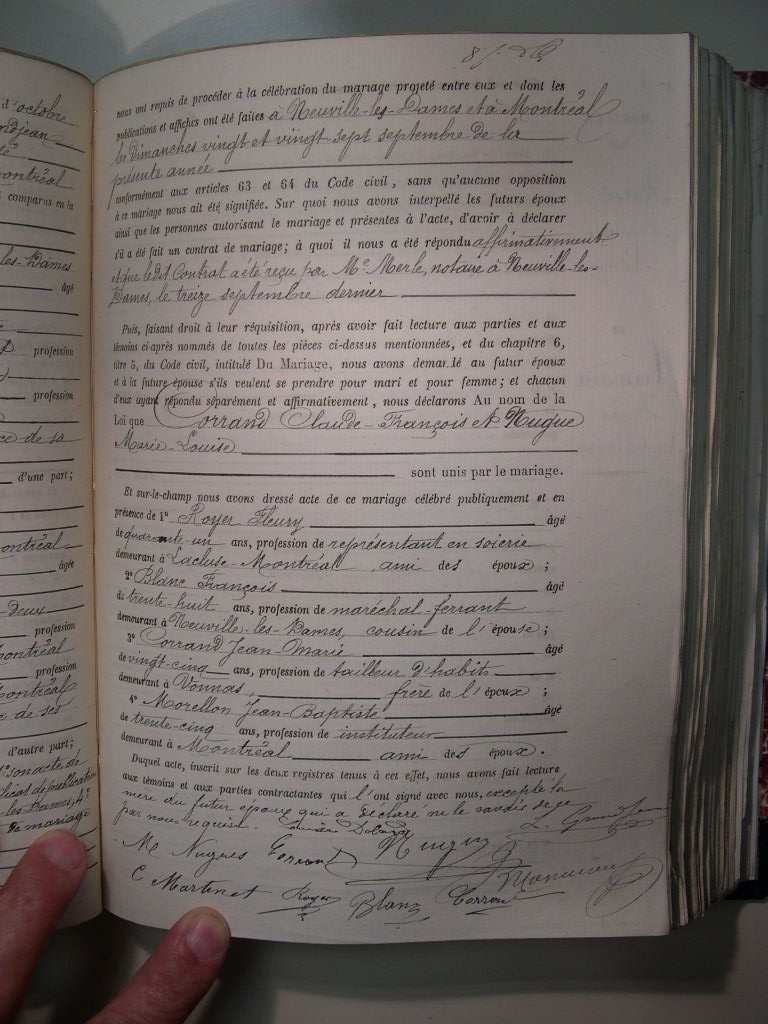 d'octobre
ndjean
té
ontréal
comparus en la
les-Dames
âgé
profession
profession
ce de sa
d'une part;
ontréal
âgée
-deux
profession
ontréal
profession
ontréal
de ses
d'autre part;
1° son acte de
icat de publication
les-Dames, 4°
de mariage
nous ont requis de procéder à la célébration du mariage projeté entre eux et dont les
publications et affiches ont été faites à Neuville-les-Dames et à Montréal
les Dimanches vingt et vingt sept septembre de la
présente année
conformément aux articles 63 et 64 du Code civil, sans qu'aucune opposition
à ce mariage nous ait été signifiée. Sur quoi nous avons interpellé les futurs époux
ainsi que les personnes autorisant le mariage et présentes à l'acte, d'avoir à déclarer
s'il a été fait un contrat de mariage; à quoi il nous a été répondu affirmativement
et que ledit Contrat a été reçu par Me Merle, notaire à Neuville-les-
Dames, le treize septembre dernier
Puis, faisant droit à leur réquisition, après avoir fait lecture aux parties et aux
témoins ci-après nommés de toutes les pièces ci-dessus mentionnées, et du chapitre 6,
titre 5, du Code civil, intitulé Du Mariage, nous avons demandé au futur époux
et à la future épouse s'ils veulent se prendre pour mari et pour femme; et chacun
d'eux ayant répondu séparément et affirmativement, nous déclarons Au nom de la
Loi que Corrand Claude-François et Nugue
Marie-Louise
sont unis par le mariage.
Et sur-le-champ nous avons dressé acte de ce mariage célébré publiquement et en
présence de 1° Royer Fleury âgé
de quarante-un ans, profession de représentant en soierie
demeurant à Lacluse-Montréal ami des époux;
2° Blanc François âgé
de trente-huit ans, profession de maréchal-ferrant
demeurant à Neuville-les-Dames, cousin de l'épouse;
3° Corrand Jean-Marie âgé
de vingt-cinq ans, profession de tailleur d'habits
demeurant à Vonnas, frère de l'époux;
4° Morellon Jean-Baptiste âgé
de trente-cinq ans, profession de instituteur
demeurant à Montréal ami des époux.
Duquel acte, inscrit sur les deux registres tenus à cet effet, nous avons fait lecture
aux témoins et aux parties contractantes qui l'ont signé avec nous, excepté la
mère du futur époux qui a déclaré ne le savoir de ce
par nous requise.
M Nugues Corrand Nugue
C Martinet Royer Blanc Corrand